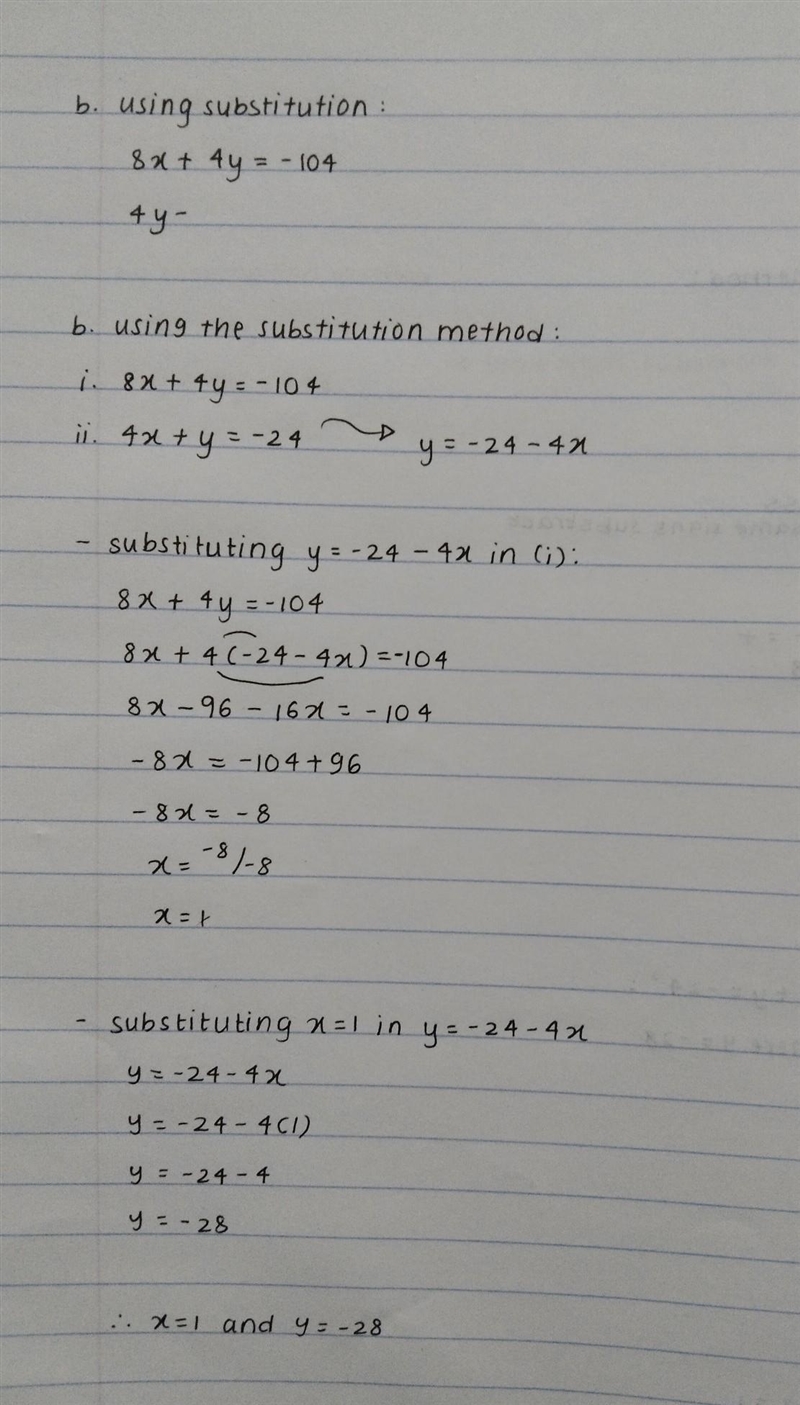 b. using substitution :
8x + 4y = -104
4y -
b. using the substitution method :
i. 8x + 4y = -104
ii. 4x + y = -24 → y = -24 - 4x
- substituting y = -24 - 4x in (i):
8x + 4y = -104
8x + 4(-24 - 4x) = -104
8x - 96 - 16x = -104
-8x = -104 + 96
-8x = -8
x = -8/-8
x = 1
- substituting x=1 in y = -24 - 4x
y = -24 - 4x
y = -24 - 4(1)
y = -24 - 4
y = -28
∴ x=1 and y = -28